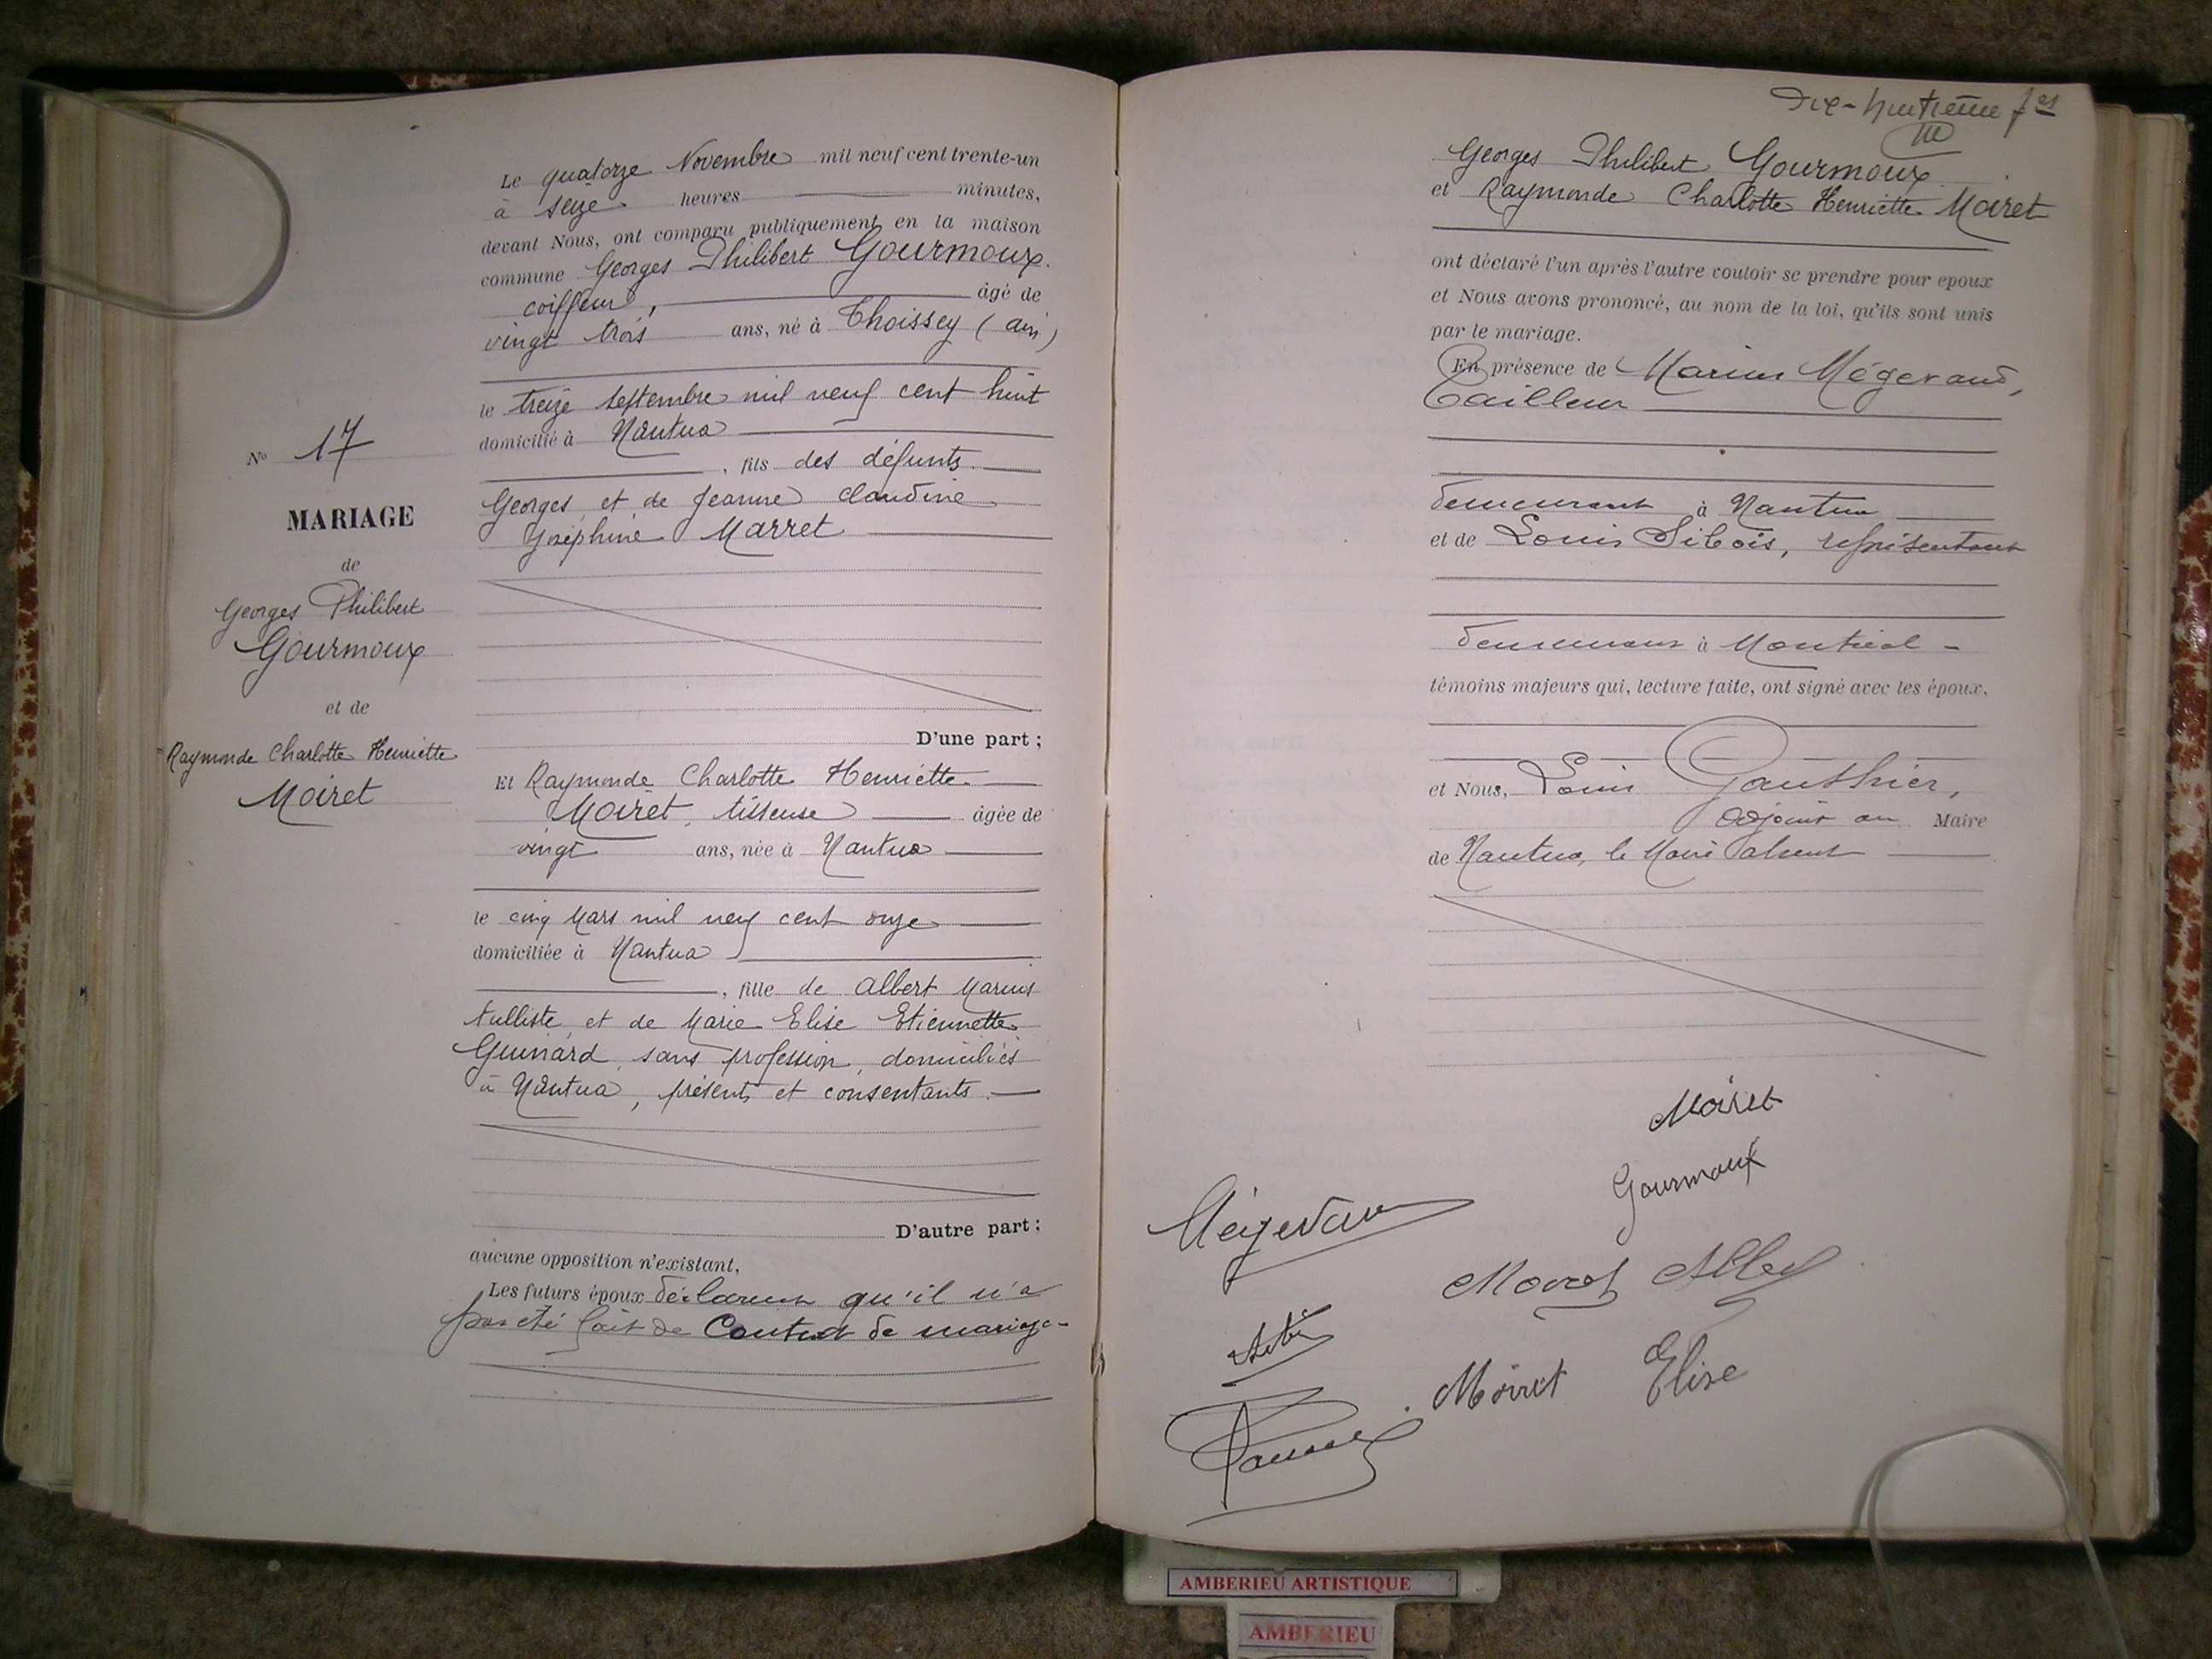 Le quatorze Novembre mil neuf cent trente-un
à seize heures minutes,
devant Nous, ont comparu publiquement en la maison
commune Georges Philibert Gourmoux
coiffeur, âgé de
vingt trois ans, né à Thoissey (ain)
le treize septembre mil neuf cent huit
domicilié à Nantua
, fils des défunts
Georges et de Jeanne Claudine
Joséphine Marret
D'une part ;
Et Raymonde Charlotte Henriette
Moiret, tisseuse âgée de
vingt ans, née à Nantua
le cinq Mars mil neuf cent onze
domiciliée à Nantua
, fille de Albert Marius
tulliste et de Marie Elise Etiennette
Guinard, sans profession, domiciliés
à Nantua, présents et consentants.
D'autre part ;
aucune opposition n'existant,
Les futurs époux déclarent qu'il n'a
pas été fait de Contrat de mariage-
No 17
MARIAGE
de
Georges Philibert
Gourmoux
et de
Raymonde Charlotte Henriette
Moiret
Dix-huitième fet
Georges Philibert Gourmoux
et Raymonde Charlotte Henriette Moiret
ont déclaré l'un après l'autre vouloir se prendre pour epoux
et Nous avons prononcé, au nom de la loi, qu'ils sont unis
par le mariage.
En présence de Marius Mégevand,
Tailleur
demeurant à Nantua
et de Louis Sibois, représentant
demeurant à Montréal -
témoins majeurs qui, lecture faite, ont signé avec les époux,
et Nous, Louis Gauthier,
adjoint au Maire
de Nantua, le Maire absent
Moiret
Gourmoux
Mégevand
Moiret Albert
Moiret Elise
AMBERIEU ARTISTIQUE
AMBERIEU